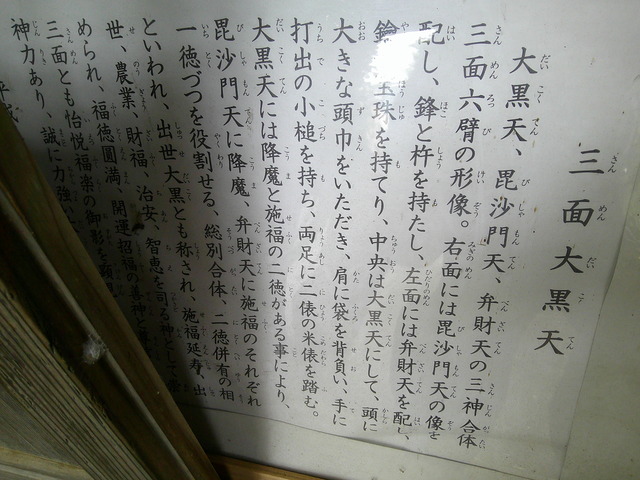 三面大黒天
大黒天、毘沙門天、弁財天の三神合体
三面六臂の形像。右面には毘沙門天の像を
配し、鋒と杵を持たし、左面には弁財天を配し、
宝珠を持てり、中央は大黒天にして、頭に
大きな頭巾をいただき、肩に袋を背負い、手に
打出の小槌を持ち、両足に二俵の米俵を踏む。
大黒天には降魔と施福の二徳がある事により、
毘沙門天に降魔、弁財天に施福のそれぞれ
一徳づつを役割せる、総別合体、二徳併有の相
といわれ、出世大黒とも称され、施福延寿、出
世、農業、財福、治安、智恵を司る神として
められ、福徳圓満、開運招福の善神と
三面とも怡悦福楽の御影を
神力あり、誠に力強い